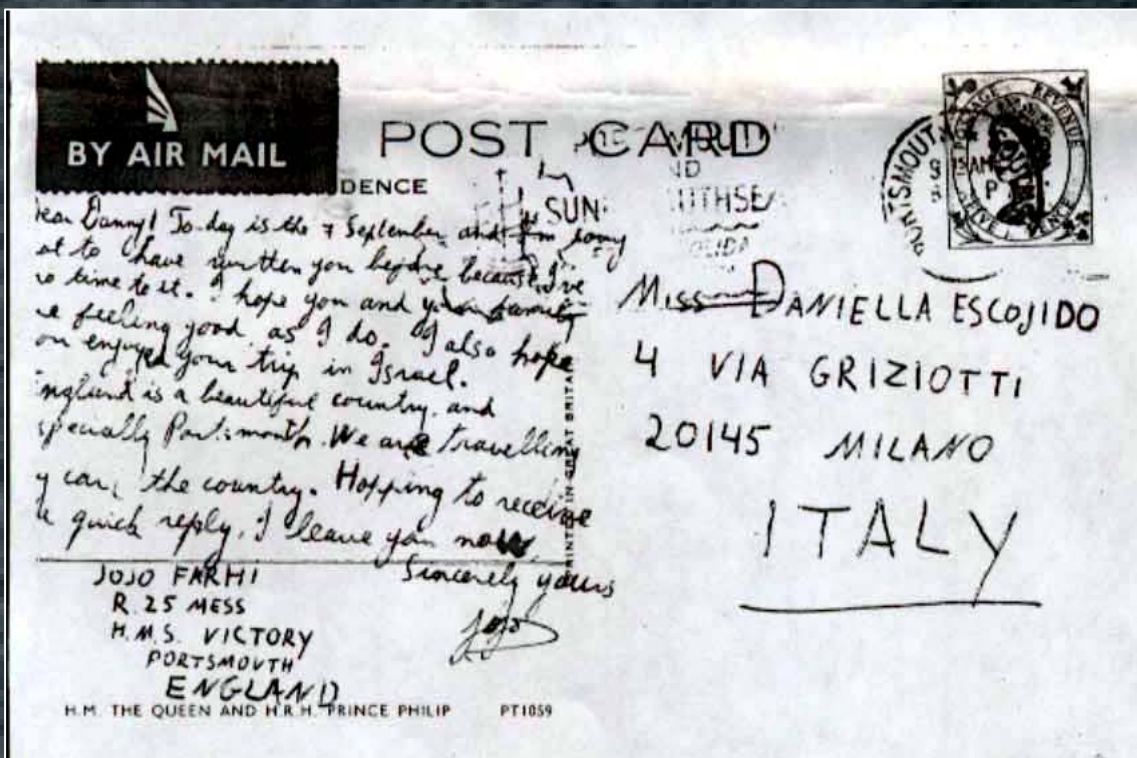 BY AIR MAIL
POST CARD
DENCE
SUN
THSEA
PORTSMOUTH
AM
P
POSTAGE REVENUE
FIVE PENCE
ear Danny! To-day is the 7 September and I'm sorry
ot to have written you before because I've
no time to it. I hope you and your family
re feeling good as I do. I also hope
ou enjoyed your trip in Israel.
ngland is a beautiful country, and
specially Portsmouth. We are travelling
y car, the country. Hopping to receive
a quick reply, I leave you now.
Sincerely yours
Jojo
JOJO FARHI
R. 25 MESS
H.M.S. VICTORY
PORTSMOUTH
ENGLAND
H.M. THE QUEEN AND H.R.H. PRINCE PHILIP PT1059
PRINTED IN GREAT BRITAIN
MISS DANIELLA ESCOJIDO
4 VIA GRIZIOTTI
20145 MILANO
ITALY